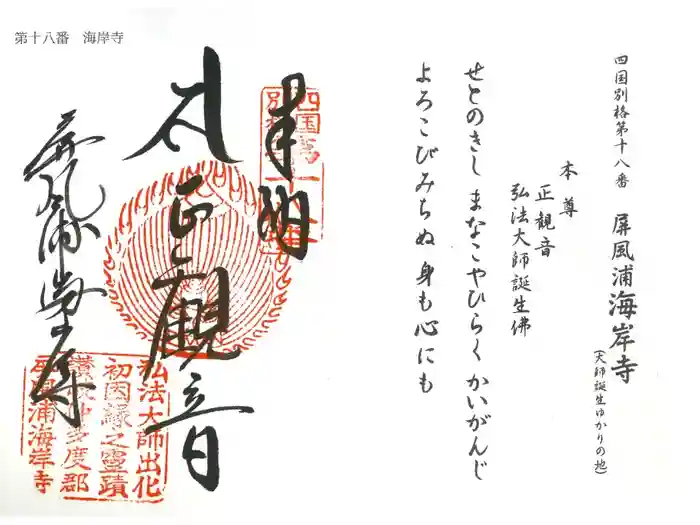 第十八番 海岸寺
四国別格第十八番 屏風浦海岸寺
(大師誕生ゆかりの地)
本尊
正観音
弘法大師誕生佛
せとのきし まなこやひらく かいがんじ
よろこびみちぬ 身も心にも
奉納
正觀音
屏風浦
弘法大師出化
初因縁之靈蹟
讃岐仲多度郡
屏風浦海岸寺